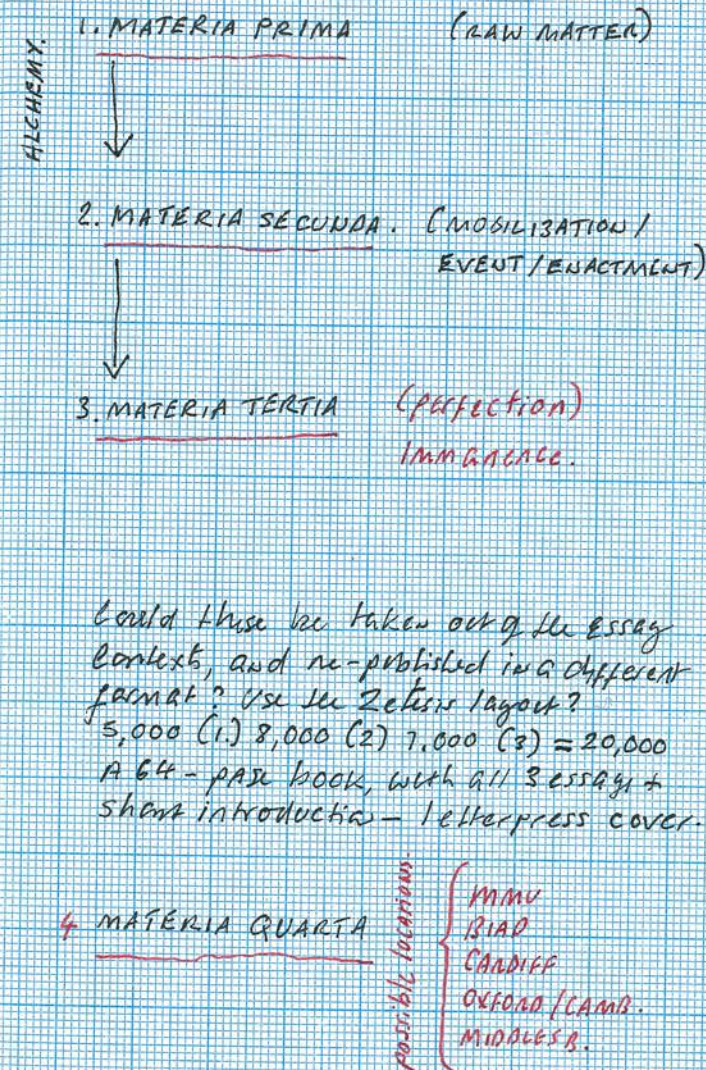 ALCHEMY.
1. MATERIA PRIMA (RAW MATTER)
2. MATERIA SECUNDA. (MOBILIZATION /
EVENT / ENACTMENT)
3. MATERIA TERTIA (perfection)
immanence.
Could these be taken out of the essay
context, and re-published in a different
format? Use the Zetesis layout?
5,000 (1.) 8,000 (2) 7,000 (3) = 20,000
A 64-page book, with all 3 essays +
short introduction – letterpress cover.
4 MATERIA QUARTA
possible locations.
MMU
BIAD
CARDIFF
OXFORD / CAMB.
MIDDLESB.